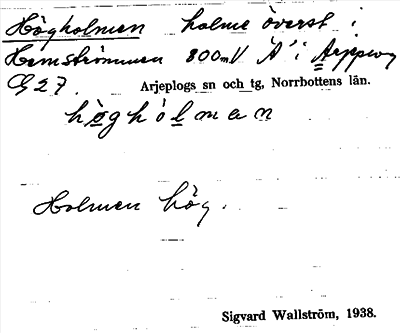 Högholmen holme överst i
Hemströmmen 800 m V "A" i Arjeplog
G 27. Arjeplogs sn och tg, Norrbottens län.
högholmen
Holmen hög.
Sigvard Wallström, 1938.